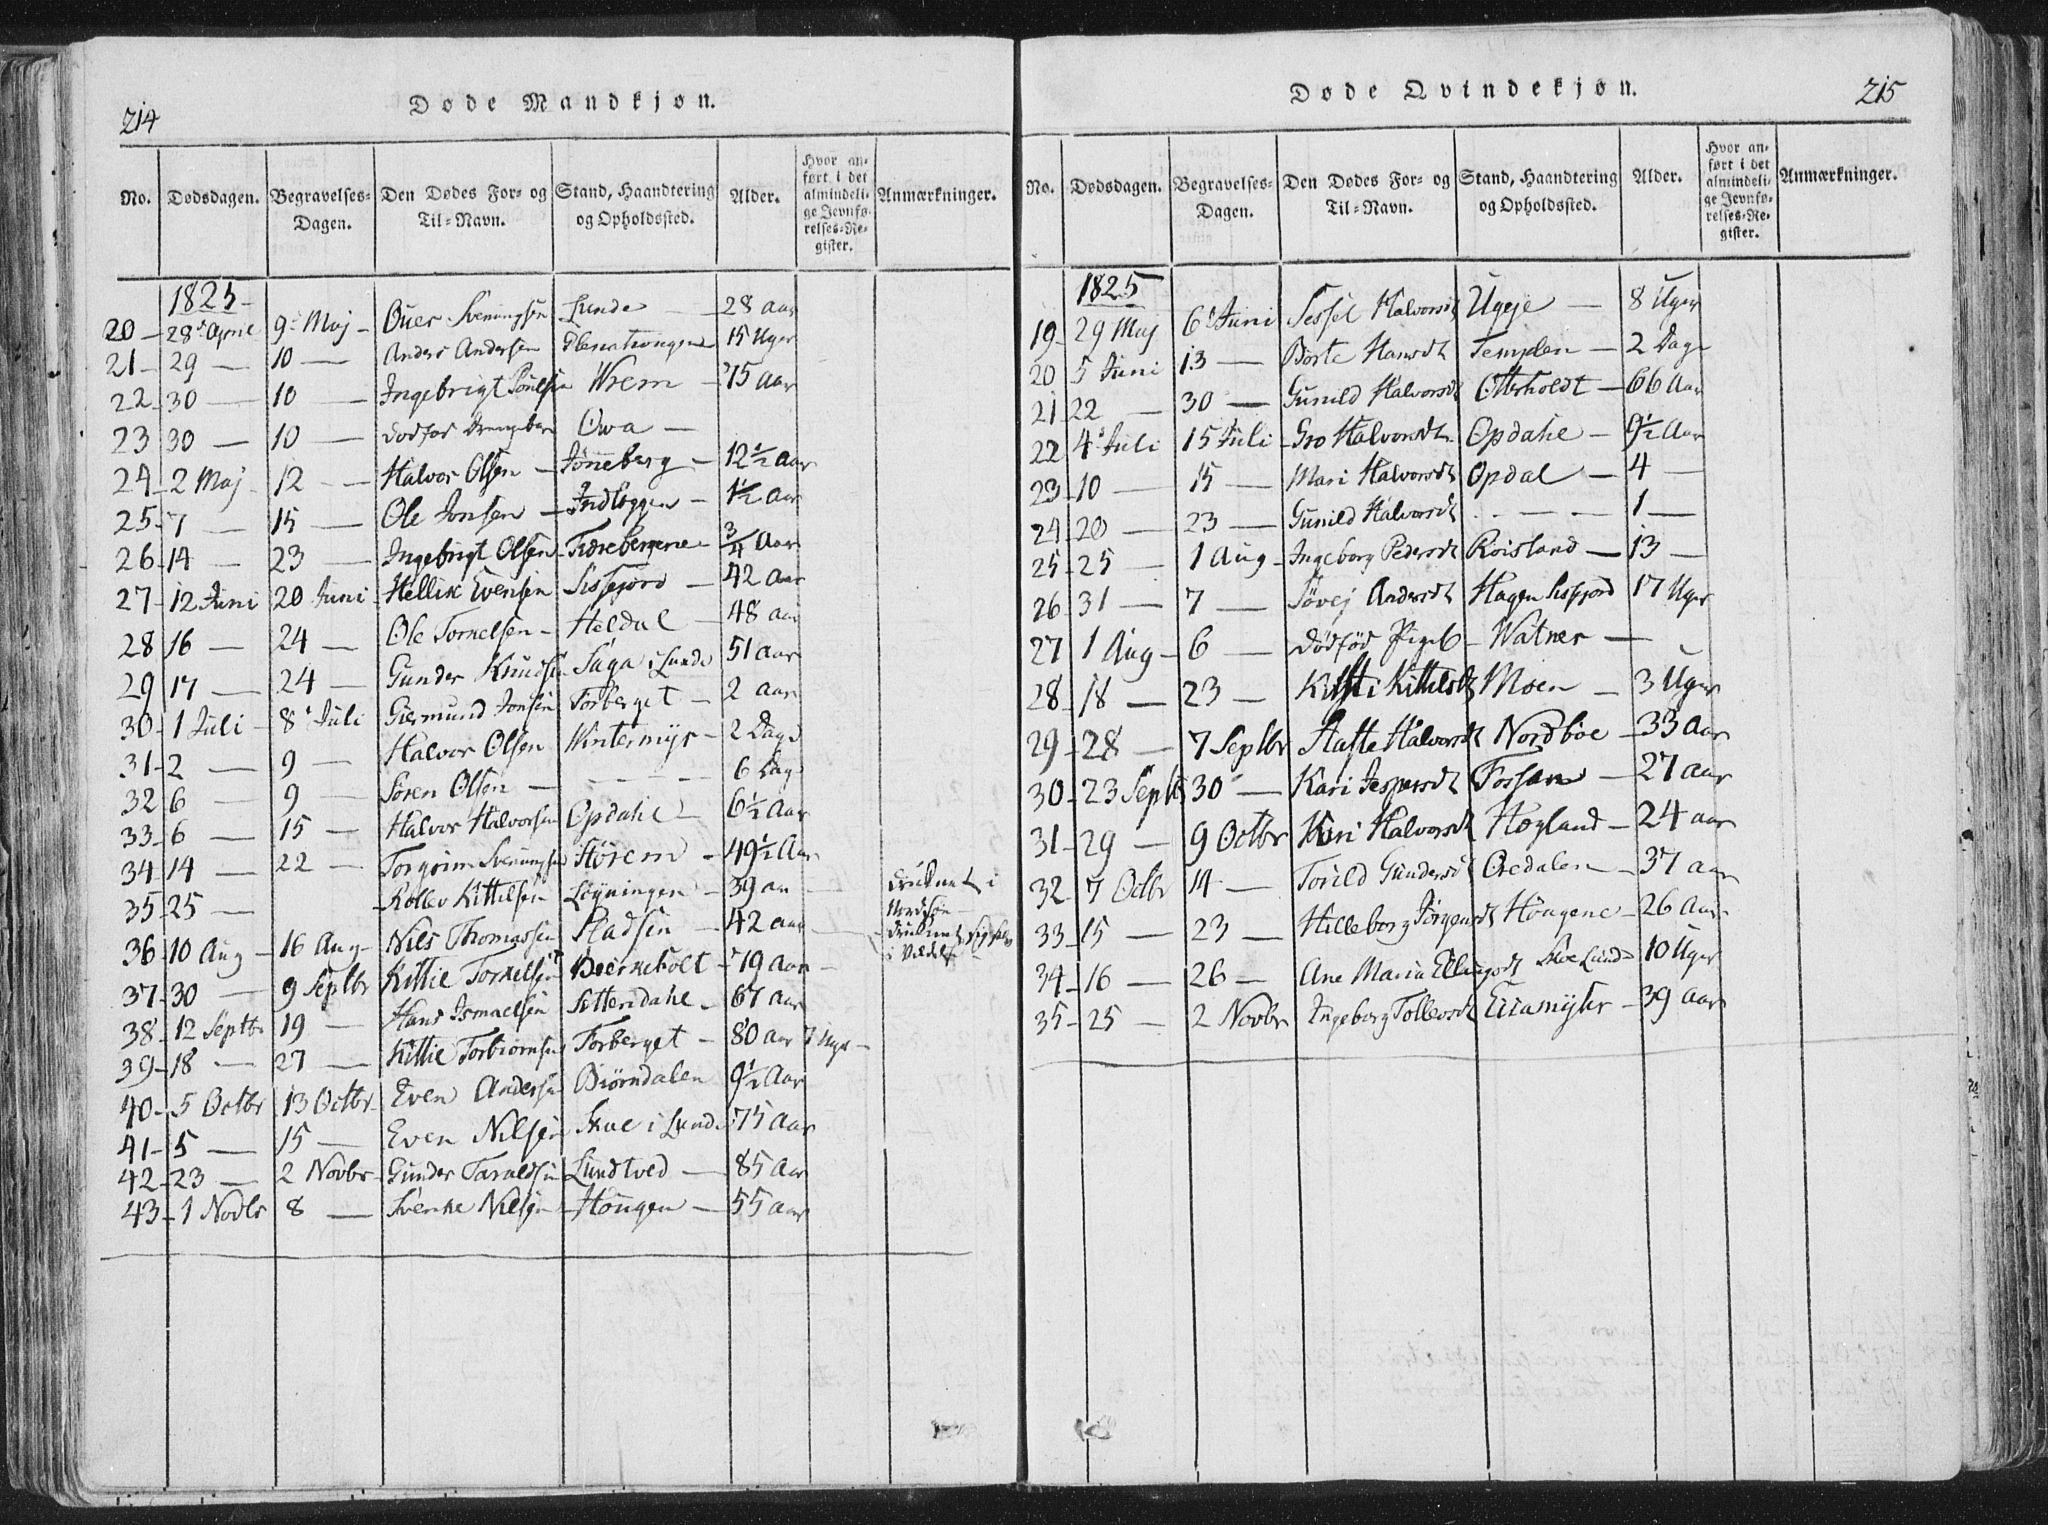 214
Døde Mandkjøn.
No. Dødsdagen. Begravelses-Dagen. Den Dødes For- og Til-Navn. Stand, Haandtering og Opholdssted. Alder. Hvor anført i det almindelige Jevnførelses-Register. Anmærkninger.
1825
20 28 April 9 Maj Svenungsen Lunde 28 Aar
21 29 10 Anders Andersen 15 Uger
22 30 10 Ingebrigt Poulsen Wrem 75 Aar
23 30 10 Owa
24 2 Maj 12 Halvor Olsen Jønneberg 12½ Aar
25 7 15 Ole Jonsen Indlæggen 1½ Aar
26 14 23 Ingebrigt Olsen ¾ Aar
27 12 Juni 20 Juni Hellik Evensen 42 Aar
28 16 24 Ole Torkelsen Heldal 48 Aar
29 17 24 Gunder Knudsen Saga i Lunde 51 Aar
30 1 Juli 8 Juli Giermund Jonsen Torberget 2 Aar
31 2 9 Halvor Olsen Wintermyr 2 Dage
32 6 9 Søren Olsen 6 Dage
33 6 15 Halvor Halvorsen Opdahl 6½ Aar
34 14 22 Torgrim Svenungsen 49½ Aar
35 25 Rollev Kittilsen 39 druknet i Nordsøen
36 10 Aug 16 Aug Nils Thomassen Pladsen 42 Aar
37 30 9 Septbr Kittil Torkelsen Bierkeholt 79 Aar
38 12 Septbr 19 Hans Ismaelsen Settendahl 67 Aar
39 18 27 Kittil Torbiornsen Torberget 80 Aar 7 Uger
40 5 Octbr 13 Octbr Even Andersen Biørndalen 9½ Aar
41 5 15 Even Nilsen Skoe i Lunde 75 Aar
42 23 2 Novbr Gunder Taraldsen Lundtved 85 Aar
43 1 Novbr 8 Svenke Nilsen Høugen 55 Aar
215
Døde Qvindekjøn.
No. Dødsdagen. Begravelses-Dagen. Den Dødes For- og Til-Navn. Stand, Haandtering og Opholdssted. Alder. Hvor anført i det almindelige Jevnførelses-Register. Anmærkninger.
1825
19 29 Maj 6 Juni Halvorsdt 8 Uger
20 5 Juni 13 Børte Hansdt Templen 2 Dage
21 22 30 Gunild Halvorsdt Otterholdt 66 Aar
22 4 Juli 15 Juli Gro Halvorsdt Opdahl 9½ Aar
23 10 15 Mari Halvorsdt Opdal 4
24 20 23 Gunild Halvorsdt 1
25 25 1 Aug Ingeborg Pedersdt Roisland 13
26 31 7 Andersdt Hagen 17 Uger
27 1 Aug 6 dødfød Pigeb Watner
28 18 23 Kittilsdt Moen 3 Uger
29 28 7 Septbr Halvorsdt Nordbøe 33 Aar
30 23 Septbr 30 Kari Jespersdt Fossan 27 Aar
31 29 9 Octbr Kari Halvorsdt Høgland 24 Aar
32 7 Octbr 14 Torild Gundersdt 37 Aar
33 15 23 Hilleborg Jørgensdt Høugene 26 Aar
34 16 26 Ane Maria Ellingsdt Skoe Lunde 10 Uger
35 25 2 Novbr Ingeborg Tollevsdt 39 Aar